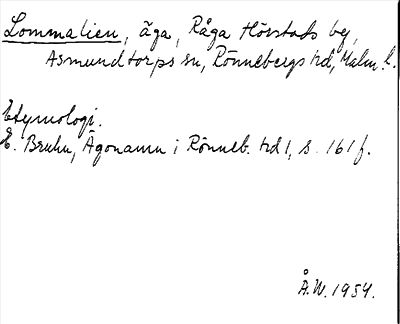 Lommalien, äga, Råga Hörstads by,
Asmundtorps sn, Rönnebergs hd, Malm. l.
Etymologi.
E. Bruhn, Ägonamn i Rönneb. hd 1, s. 161 f.
Å.W. 1954.